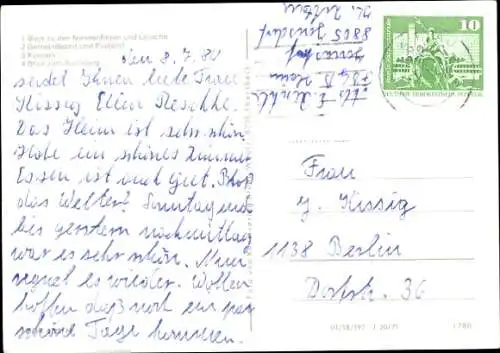 1 Blick zu den Nonnenfelsen und Lausche
2 Gemeindeamt und Postamt
3 Kurpark
den 8.7.80
sendet Ihnen liebe Frau
Kissig Ellen Reschke.
Das Heim ist sehr schön
Habe ein schönes Zimmer
Essen ist auch gut. Bloß
das Wetter? Sonntag und
bis gestern nachmittag
war es sehr schön. Nun
regnet es wieder. Wollen
hoffen daß noch ein paar
schöne Tage kommen.
8805 Jonsdorf
10
DEUTSCHE DEMOKRATISCHE REPUBLIK
Frau
J. Kissig
1138 Berlin
Dorfstr. 36